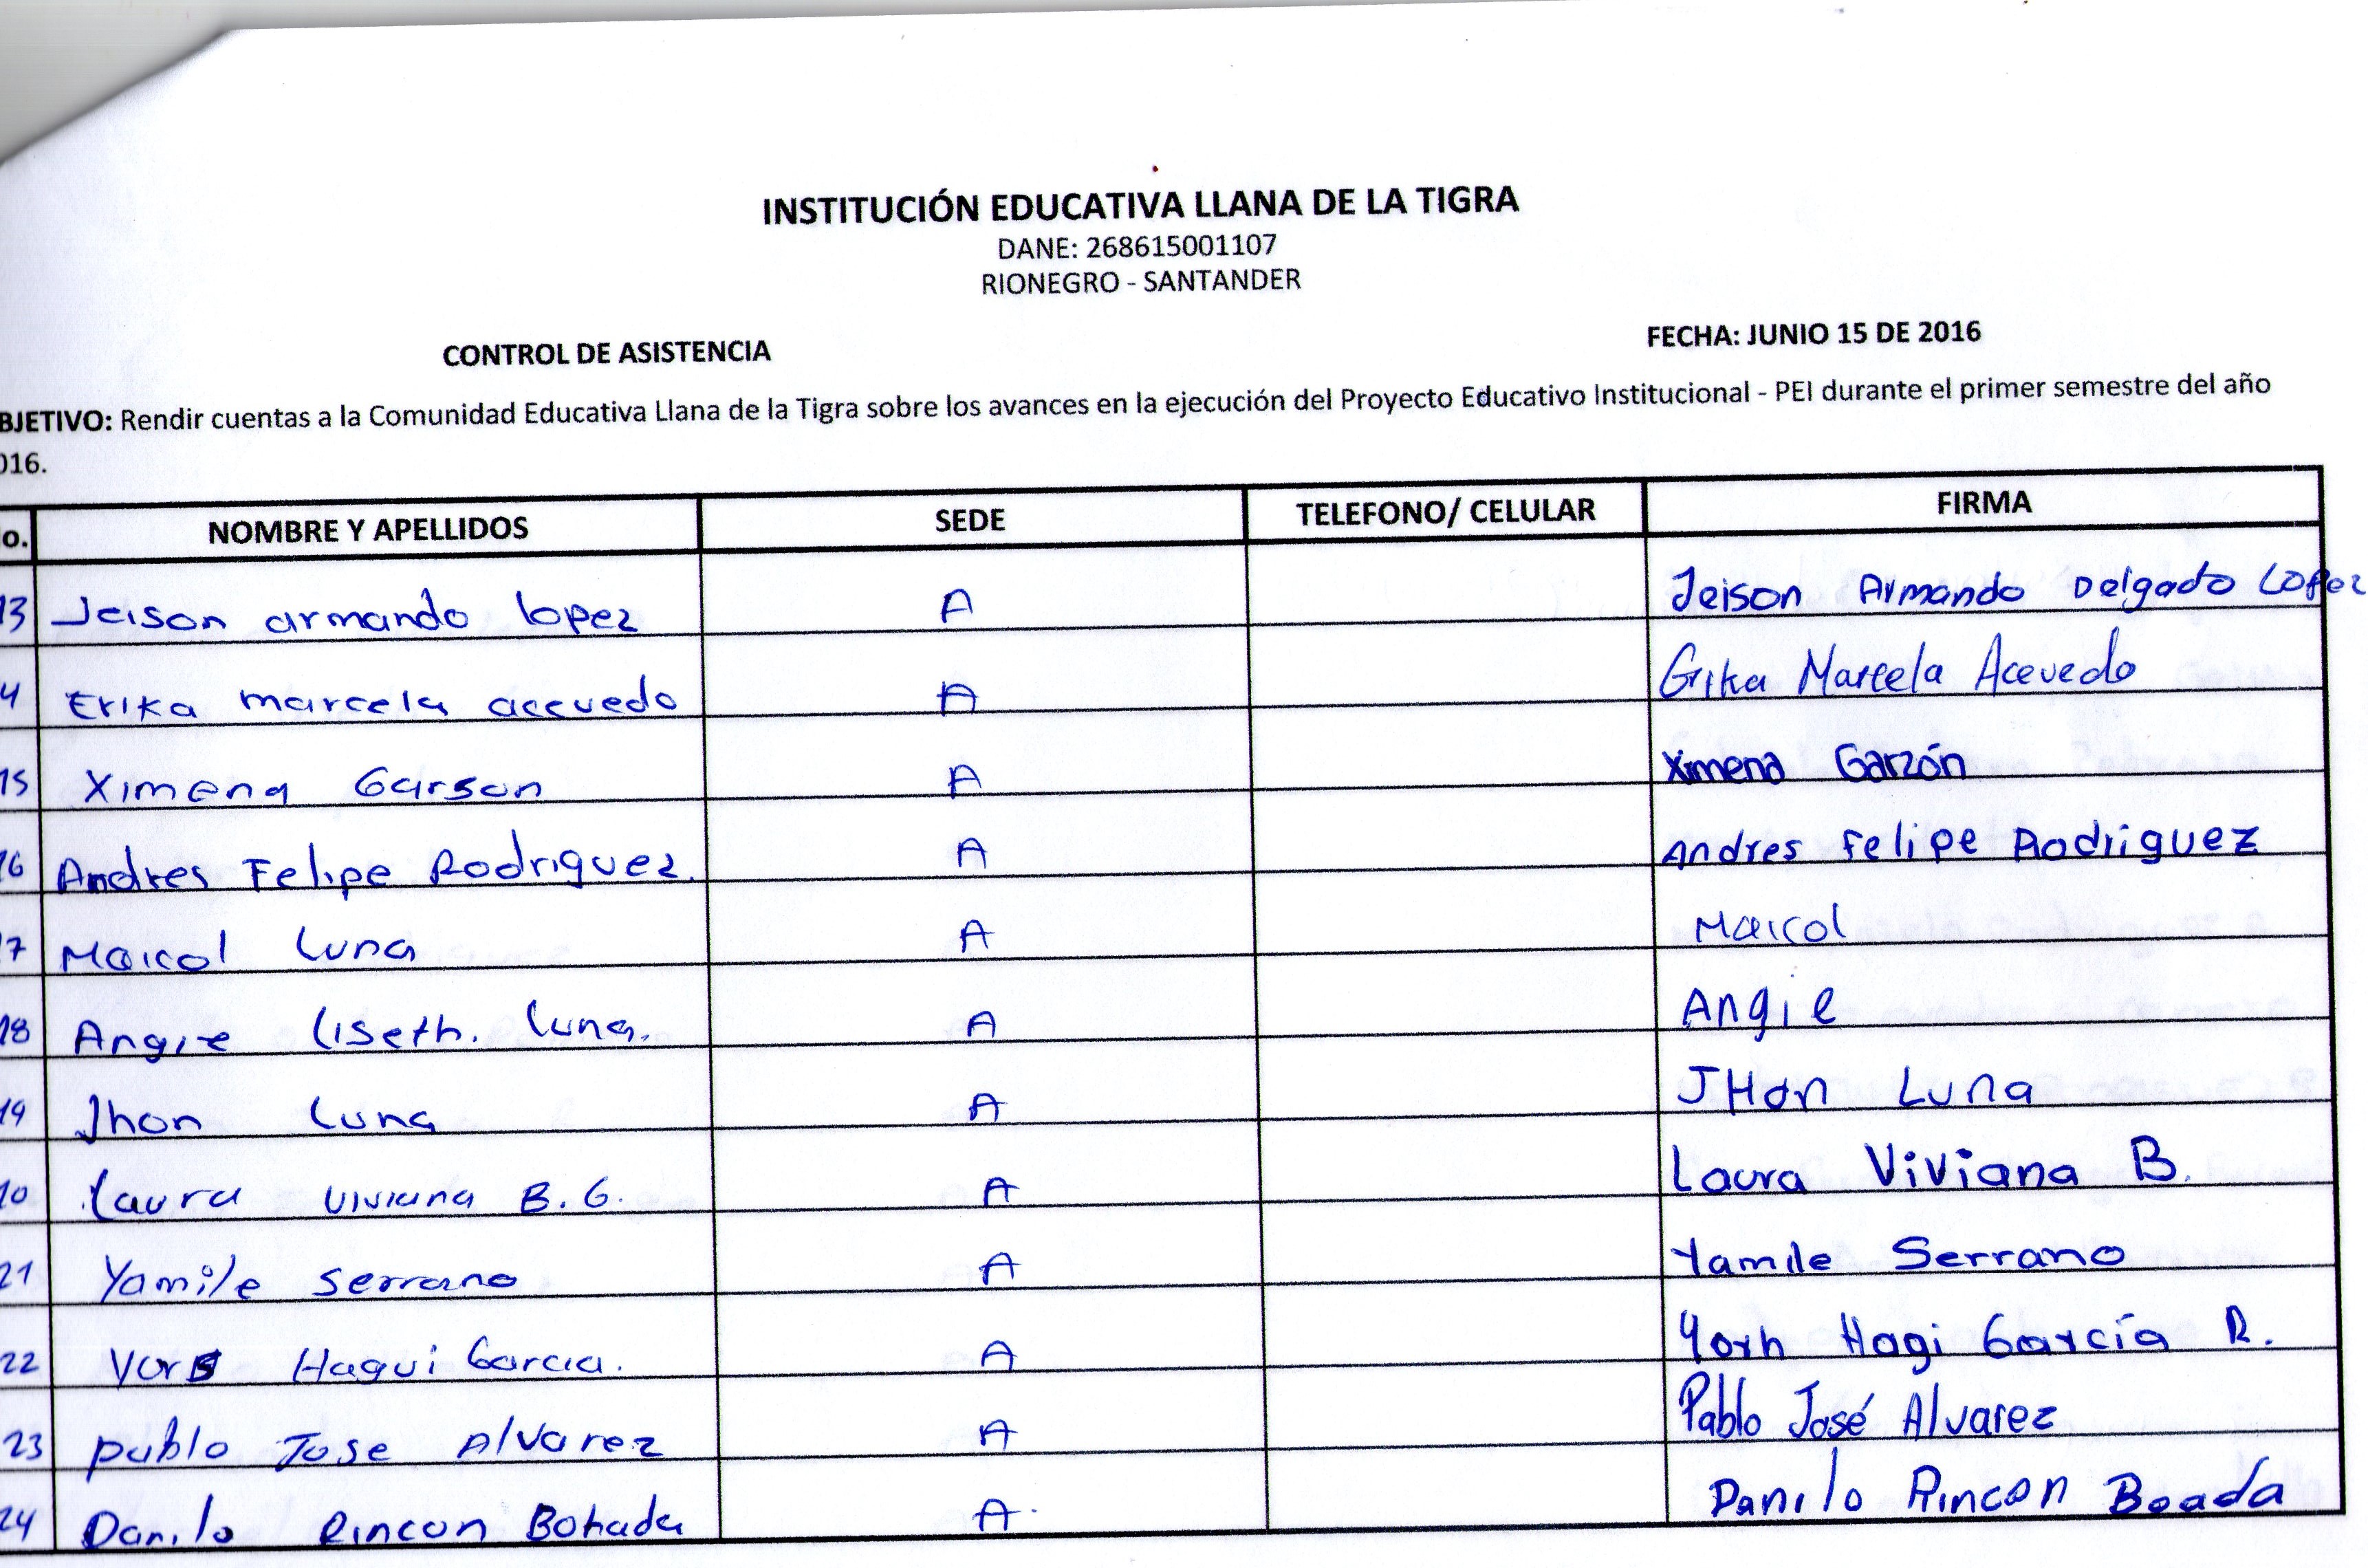 INSTITUCIÓN EDUCATIVA LLANA DE LA TIGRA
DANE: 268615001107
RIONEGRO - SANTANDER
CONTROL DE ASISTENCIA FECHA: JUNIO 15 DE 2016
BJETIVO: Rendir cuentas a la Comunidad Educativa Llana de la Tigra sobre los avances en la ejecución del Proyecto Educativo Institucional - PEI durante el primer semestre del año
016.
o. NOMBRE Y APELLIDOS SEDE TELEFONO/ CELULAR FIRMA
13 Jeison armando lopez A Jeison Armando Delgado Lopez
4 Erika marcela acevedo A Erika Marcela Acevedo
15 Ximena Garson A Ximena Garzón
16 Andres Felipe Rodriguez. A Andres Felipe Rodriguez
17 Maicol Luna A Maicol
18 Angie Liseth. Luna. A Angie
19 Jhon Luna A JHon Luna
10 Laura Viviana B. G. A Laura Viviana B.
21 Yamile Serrano A Yamile Serrano
22 Hagui Garcia. A Yorh Hagi García R.
23 pablo Jose Alvarez A Pablo José Alvarez
24 Danilo Rincon Bohada A. Danilo Rincon Boada